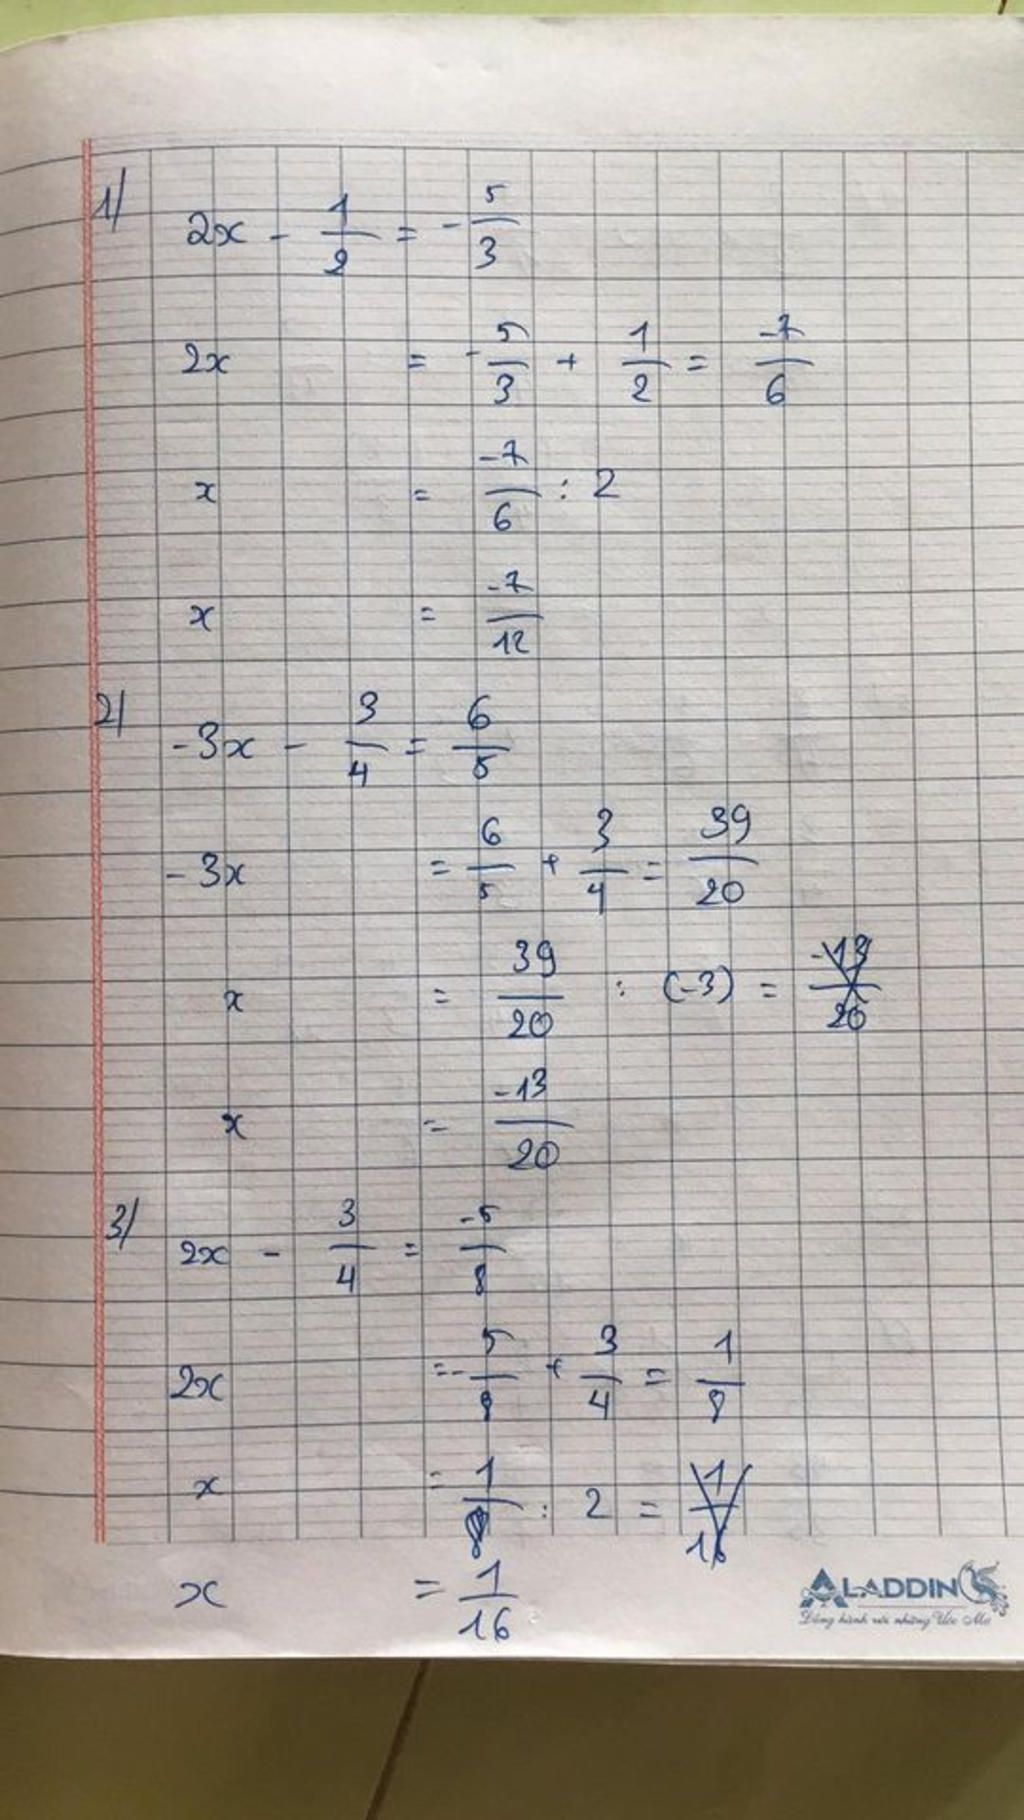 1/ 2x - 1/2 = -5/3
2x = -5/3 + 1/2 = -7/6
x = -7/6 : 2
x = -7/12
2/ -3x - 3/4 = 6/5
-3x = 6/5 + 3/4 = 39/20
x = 39/20 : (-3) = -13/20
x = -13/20
3/ 2x - 3/4 = -5/8
2x = -5/8 + 3/4 = 1/8
x = 1/8 : 2 = 1/16
x = 1/16
ALADDIN
Đồng hành với những Ước Mơ